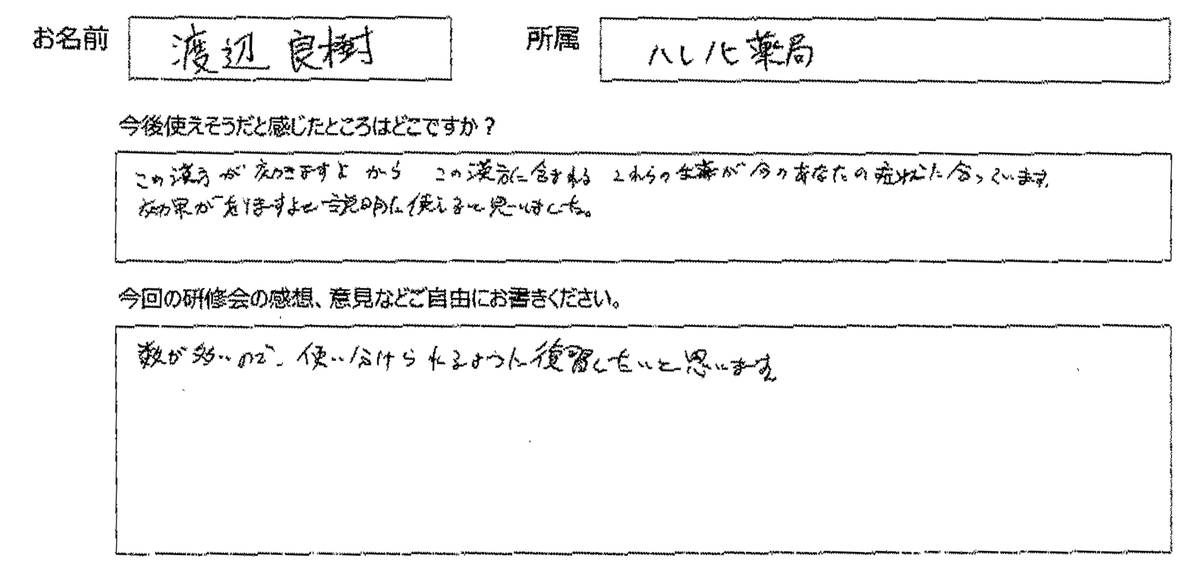 お名前 渡辺 良樹 所属 ハレノヒ薬局
今後使えそうだと感じたところはどこですか？
この漢方が効きますよ から この漢方に含まれる これらの生薬が今のあなたの症状に合っています。
効果が有りますよと説明に使えると思いました。
今回の研修会の感想、意見などご自由にお書きください。
数が多いので、使い分けられるように復習したいと思います。